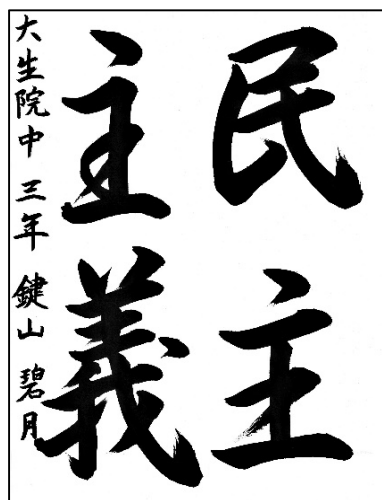 民主
主義
大生院中 三年 鍵山 碧月